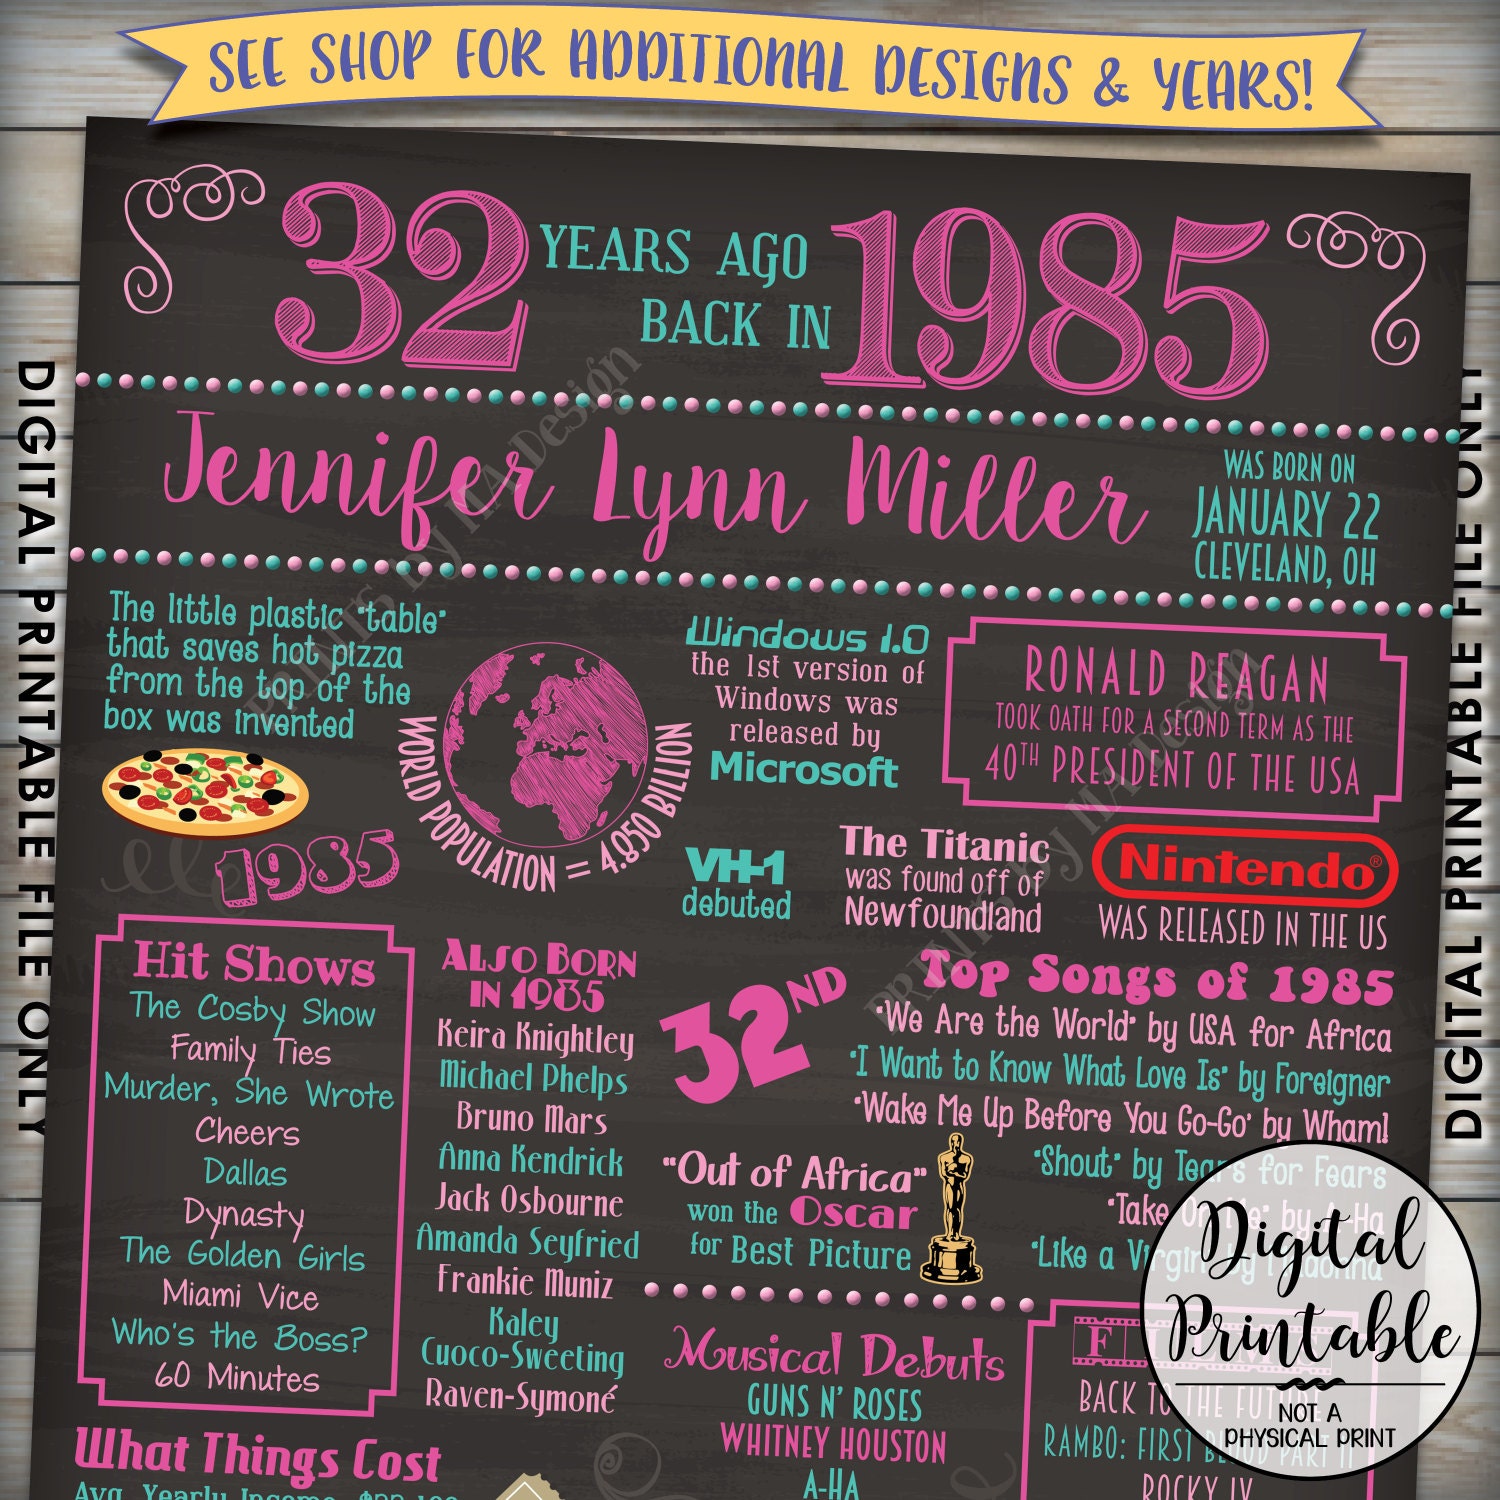 SEE SHOP FOR ADDITIONAL DESIGNS & YEARS!
32 YEARS AGO BACK IN 1985
Jennifer Lynn Miller
WAS BORN ON
JANUARY 22
CLEVELAND, OH
DIGITAL PRINTABLE FILE ONLY
DIGITAL PRINTABLE FILE ONLY
The little plastic "table"
that saves hot pizza
from the top of the
box was invented
1985
WORLD POPULATION = 4.850 BILLION
Windows 1.0
the 1st version of
Windows was
released by
Microsoft
RONALD REAGAN
TOOK OATH FOR A SECOND TERM AS THE
40TH PRESIDENT OF THE USA
VH-1
debuted
The Titanic
was found off of
Newfoundland
Nintendo®
WAS RELEASED IN THE US
Hit Shows
The Cosby Show
Family Ties
Murder, She Wrote
Cheers
Dallas
Dynasty
The Golden Girls
Miami Vice
Who's the Boss?
60 Minutes
Also Born
in 1985
Keira Knightley
Michael Phelps
Bruno Mars
Anna Kendrick
Jack Osbourne
Amanda Seyfried
Frankie Muniz
Kaley
Cuoco-Sweeting
Raven-Symoné
32ND
Top Songs of 1985
"We Are the World" by USA for Africa
"I Want to Know What Love Is" by Foreigner
"Wake Me Up Before You Go-Go" by Wham!
"Shout" by Tears for Fears
"Take On Me" by A-Ha
"Like a Virgin" by Madonna
"Out of Africa"
won the Oscar
for Best Picture
Musical Debuts
GUNS N' ROSES
WHITNEY HOUSTON
A-HA
BACK TO THE FUTURE
RAMBO: FIRST BLOOD PART II
ROCKY IV
Digital
Printable
NOT A
PHYSICAL PRINT
What Things Cost
Avg. Yearly Income
PRINTS BY MADesign
PRINTS BY MADesign